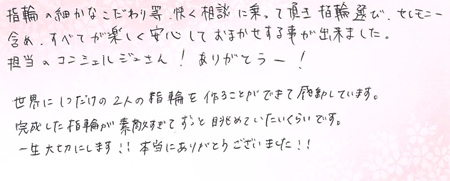 指輪の細かなこだわり等、快く相談に乗って頂き指輪選び、セレモニー
含め、すべてが楽しく安心しておまかせする事が出来ました。
担当のコンシェルジュさん！ありがとうー！
世界に1つだけの2人の指輪を作ることができて感動しています。
完成した指輪が素敵すぎてずっと眺めていたいくらいです。
一生大切にします！！本当にありがとうございました！！